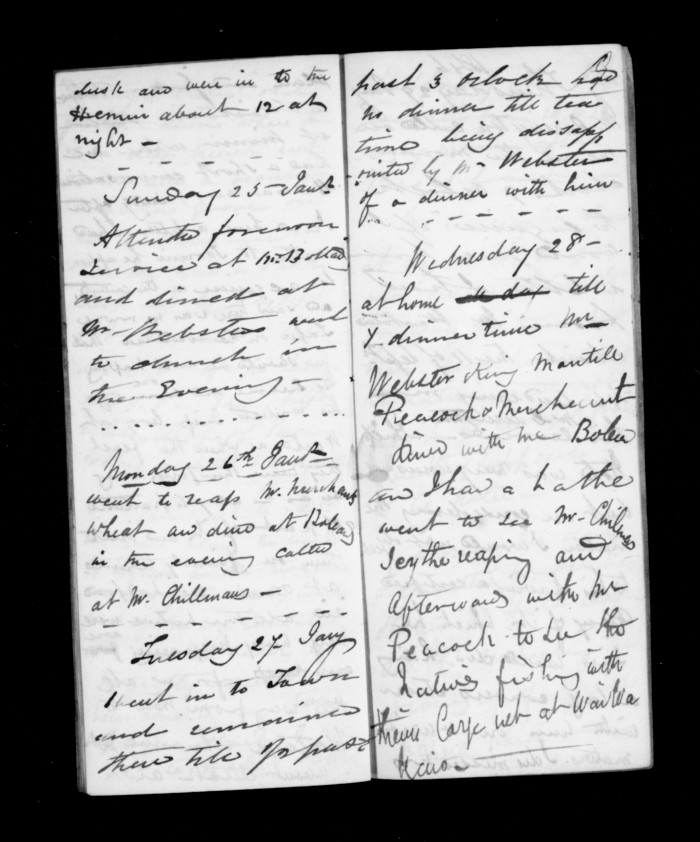 dusk and were in to the
about 12 at
night -
Sunday 25 - Jany
Attended forenoon
Service at Mr
and dined at
Mr Websters went
to church in
the Evening -
Monday 26th Jany
went to reap Mr Merchants
wheat and dine at
in the evening called
at Mr. Chillmans -
Tuesday 27 Jany
went in to Town
and remained
there till past
past 3 oclock had
no dinner till tea
time being disapp
ointed by Mr Webster
of a dinner with him
Wednesday 28 -
at home till
dinner time Mr
Webster King Mantill
Peacock & Merchant
dined with me
and I had a bathe
went to see Mr Chilmans
Scythe reaping and
afterwards with Mr
Peacock to see the
Natives fishing with
their Large net at